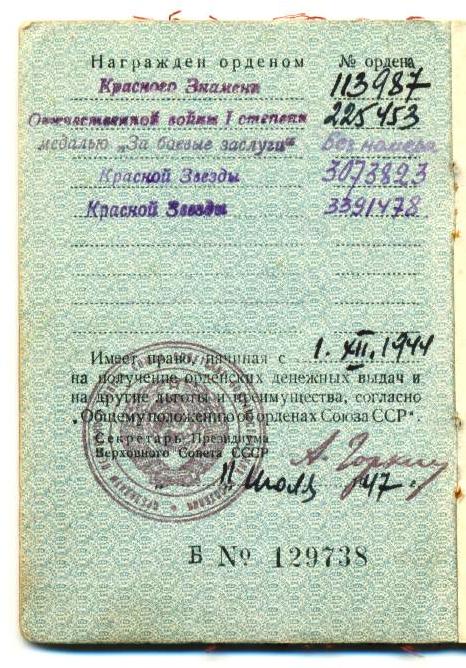 Награжден орденом № ордена
Красного Знамени 113987
Отечественной войны I степени 225453
медалью „За боевые заслуги" Без номера
Красной Звезды 3073823
Красной Звезды 3391478
Имеет право, начиная с 1.XII.1944
на получение орденских денежных выдач и
на другие льготы и преимущества, согласно
„Общему положению об орденах Союза ССР".
Секретарь Президиума
Верховного Совета СССР А. Горкин
„11" Июля 47 г.
Б № 129738